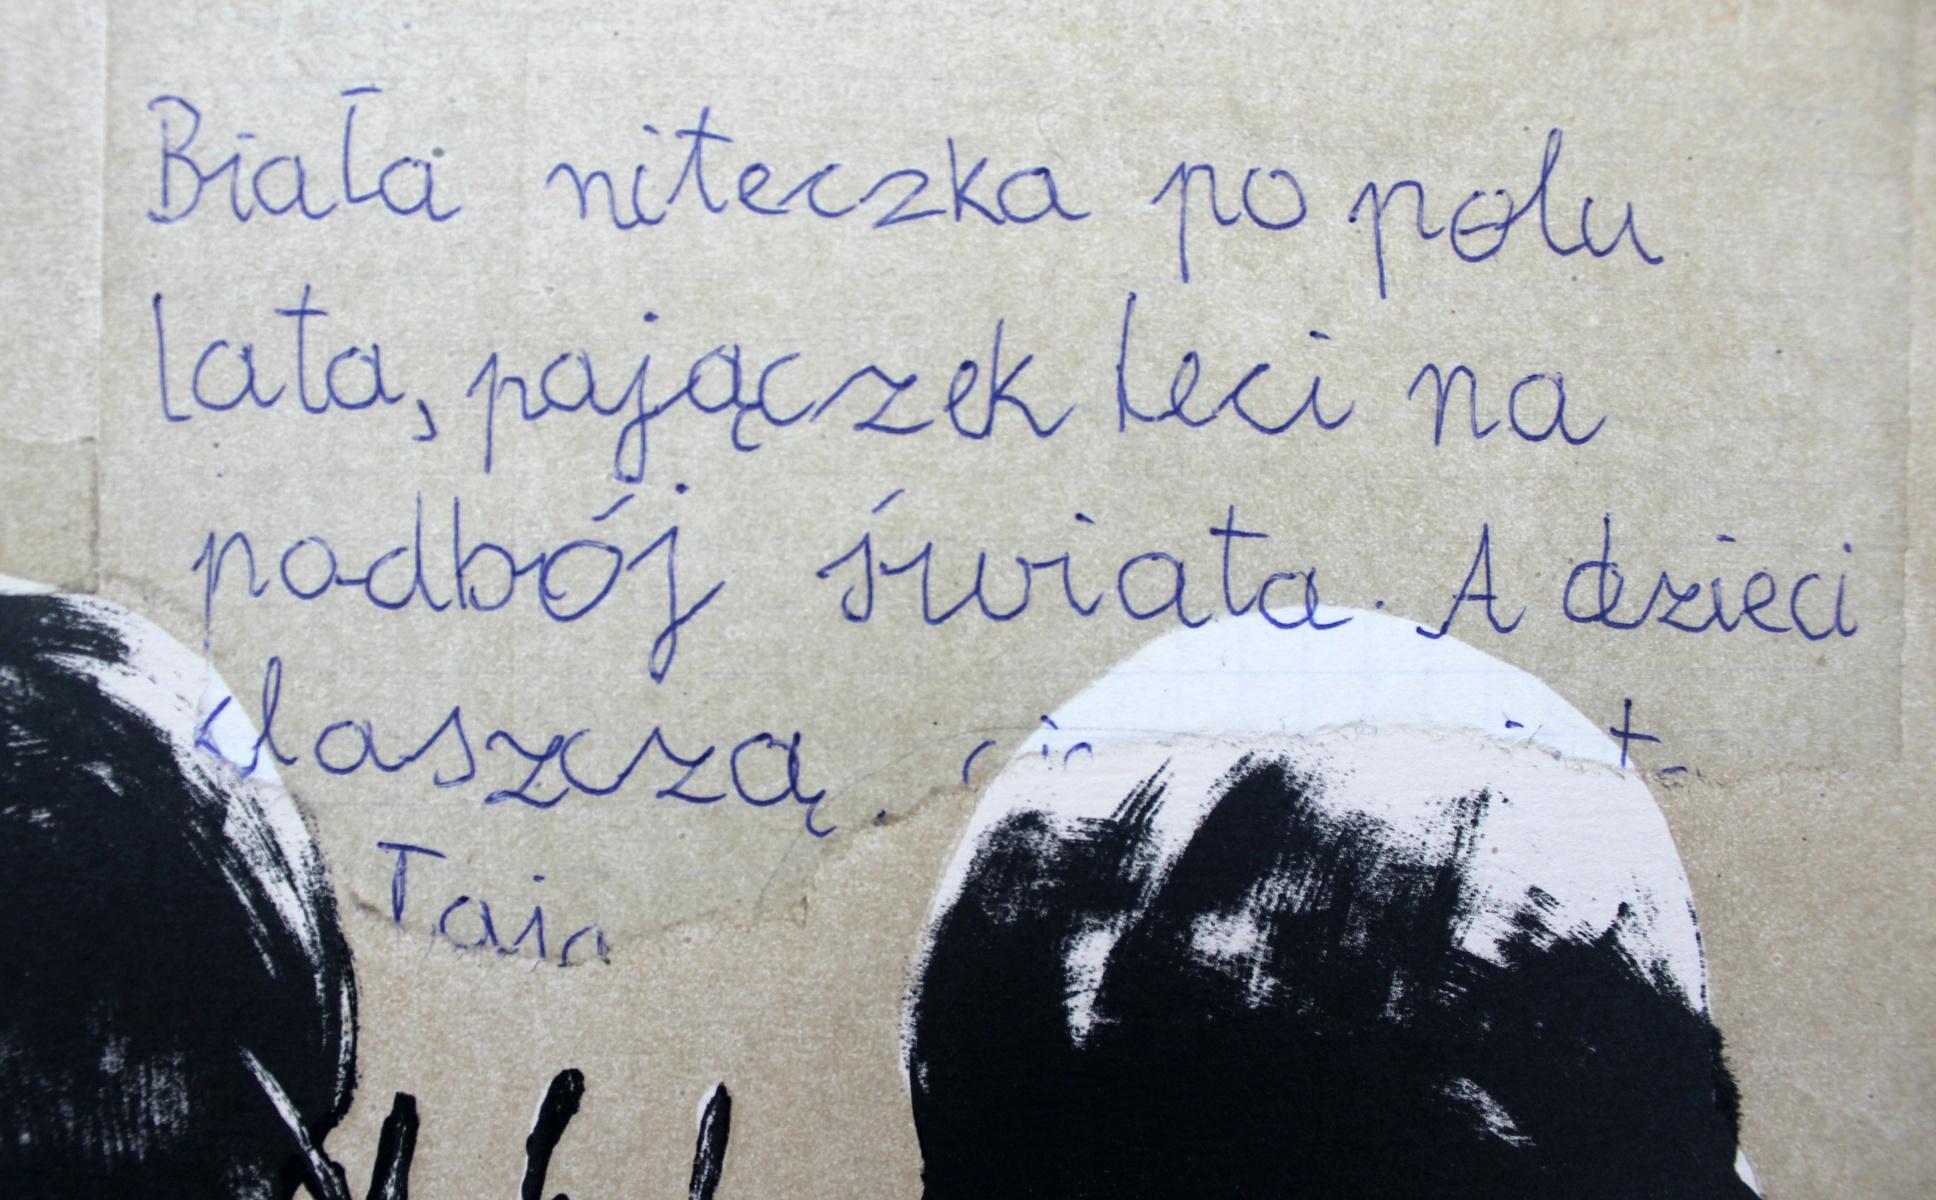 Biała niteczka po polu
lata, pajączek leci na
podbój świata. A dzieci
klaszczą.